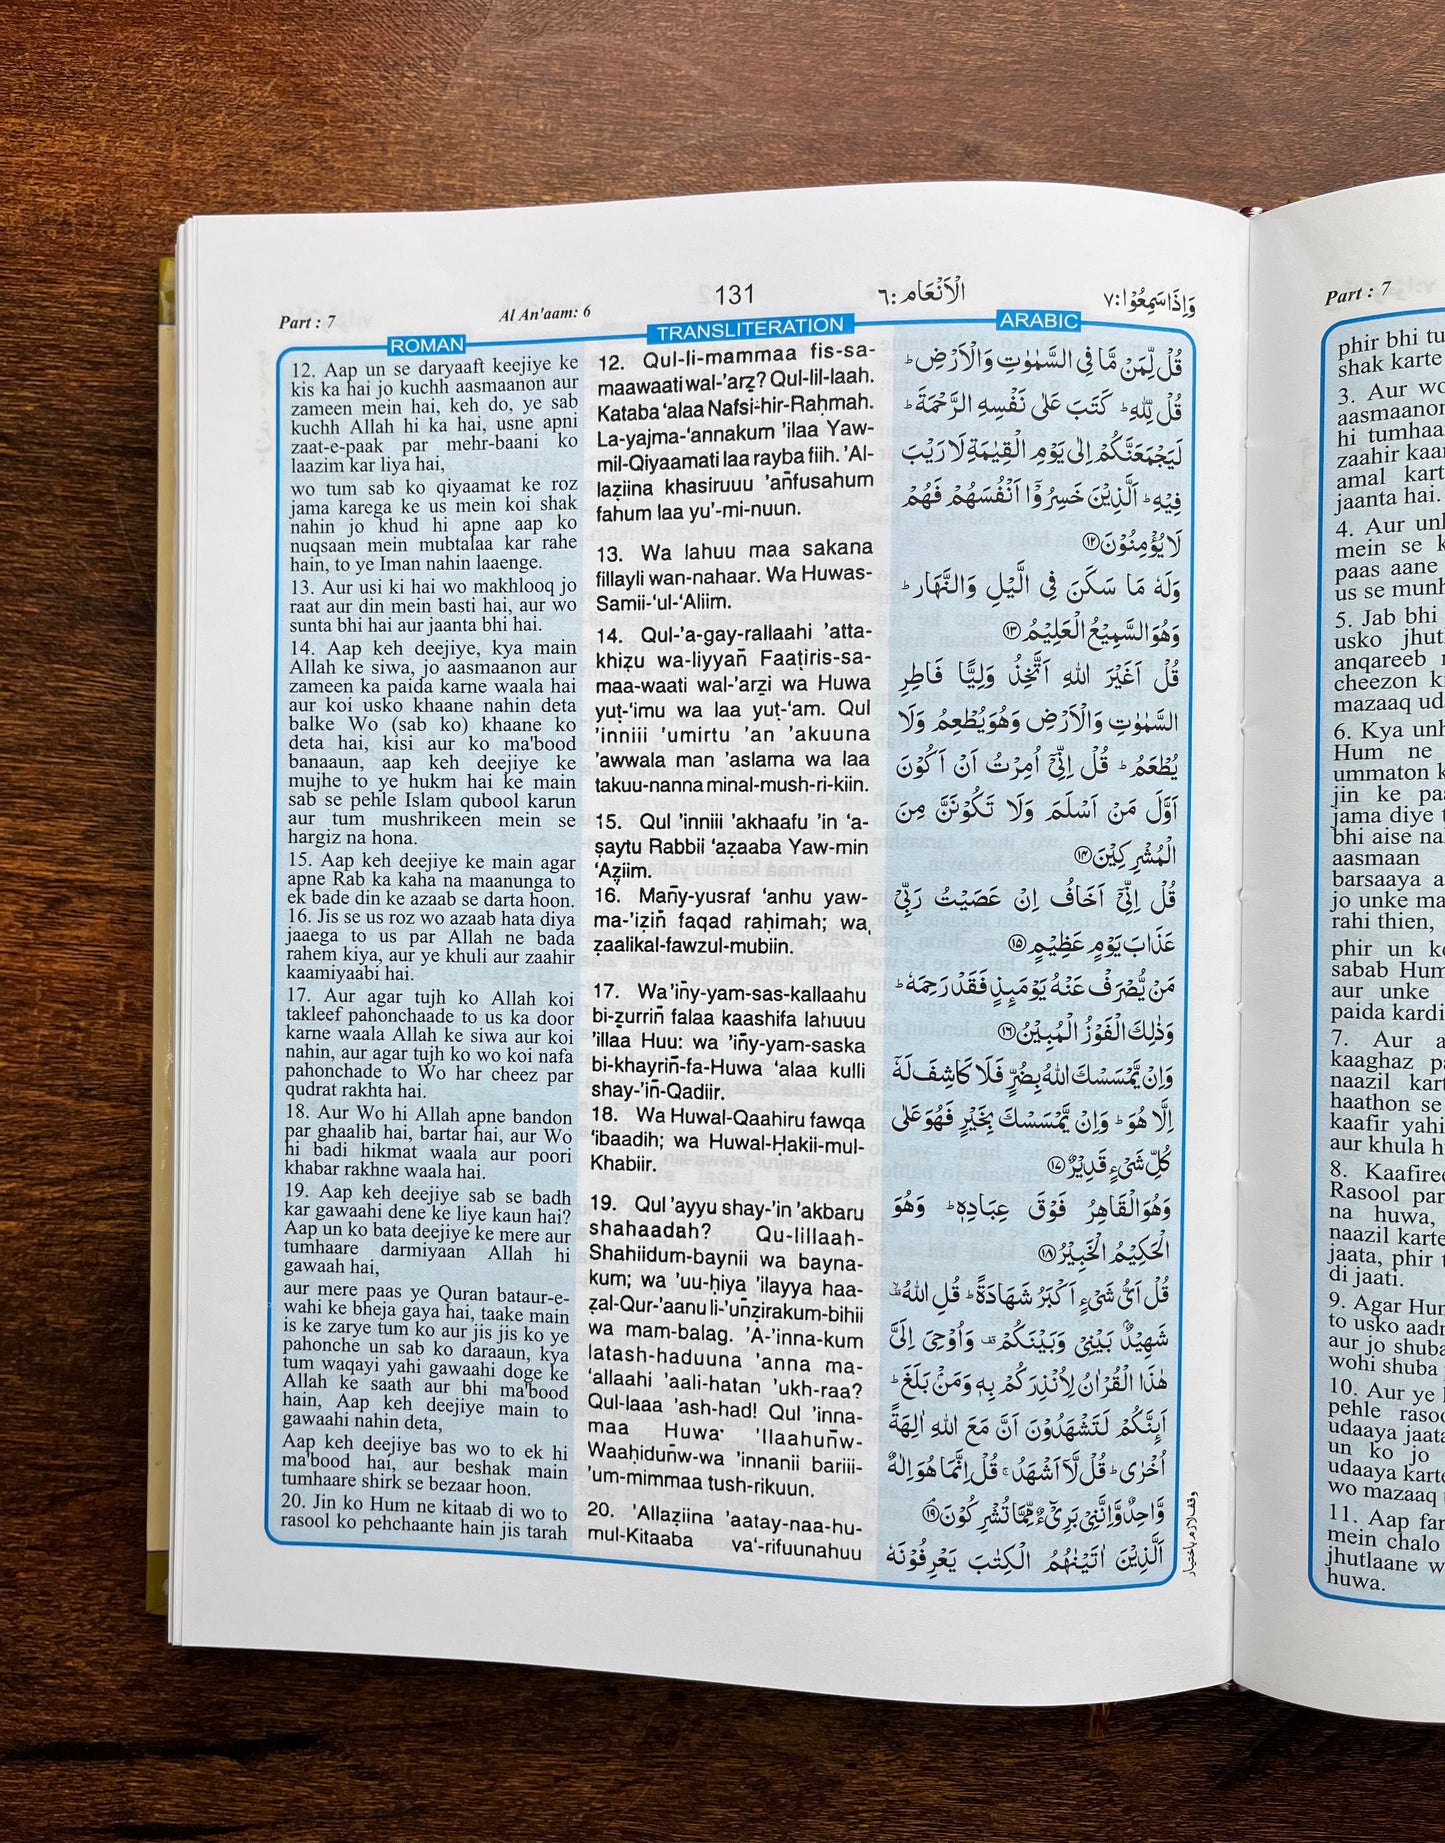 Part : 7
Al An'aam: 6
131
الْاَنْعَام:٦
وَاِذَا سَمِعُوْا:٧
ROMAN
12. Aap un se daryaaft keejiye ke
kis ka hai jo kuchh aasmaanon aur
zameen mein hai, keh do, ye sab
kuchh Allah hi ka hai, usne apni
zaat-e-paak par mehr-baani ko
laazim kar liya hai,
wo tum sab ko qiyaamat ke roz
jama karega ke us mein koi shak
nahin jo khud hi apne aap ko
nuqsaan mein mubtalaa kar rahe
hain, to ye Iman nahin laaenge.
13. Aur usi ki hai wo makhlooq jo
raat aur din mein basti hai, aur wo
sunta bhi hai aur jaanta bhi hai.
14. Aap keh deejiye, kya main
Allah ke siwa, jo aasmaanon aur
zameen ka paida karne waala hai
aur koi usko khaane nahin deta
balke Wo (sab ko) khaane ko
deta hai, kisi aur ko ma'bood
banaaun, aap keh deejiye ke
mujhe to ye hukm hai ke main
sab se pehle Islam qubool karun
aur tum mushrikeen mein se
hargiz na hona.
15. Aap keh deejiye ke main agar
apne Rab ka kaha na maanunga to
ek bade din ke azaab se darta hoon.
16. Jis se us roz wo azaab hata diya
jaaega to us par Allah ne bada
rahem kiya, aur ye khuli aur zaahir
kaamiyaabi hai.
17. Aur agar tujh ko Allah koi
takleef pahonchaade to us ka door
karne waala Allah ke siwa aur koi
nahin, aur agar tujh ko wo koi nafa
pahonchade to Wo har cheez par
qudrat rakhta hai.
18. Aur Wo hi Allah apne bandon
par ghaalib hai, bartar hai, aur Wo
hi badi hikmat waala aur poori
khabar rakhne waala hai.
19. Aap keh deejiye sab se badh
kar gawaahi dene ke liye kaun hai?
Aap un ko bata deejiye ke mere aur
tumhaare darmiyaan Allah hi
gawaah hai,
aur mere paas ye Quran bataur-e-
wahi ke bheja gaya hai, taake main
is ke zarye tum ko aur jis jis ko ye
pahonche un sab ko daraaun, kya
tum waqayi yahi gawaahi doge ke
Allah ke saath aur bhi ma'bood
hain, Aap keh deejiye main to
gawaahi nahin deta,
Aap keh deejiye bas wo to ek hi
ma'bood hai, aur beshak main
tumhaare shirk se bezaar hoon.
20. Jin ko Hum ne kitaab di wo to
rasool ko pehchaante hain jis tarah
TRANSLITERATION
12. Qul-li-mammaa fis-sa-
maawaati wal-'arẓ? Qul-lil-laah.
Kataba ‘alaa Nafsi-hir-Raḥmah.
La-yajma-‘annakum 'ilaa Yaw-
mil-Qiyaamati laa rayba fiih. 'Al-
laẓiina khasiruuu 'añfusahum
fahum laa yu'-mi-nuun.
13. Wa lahuu maa sakana
fillayli wan-nahaar. Wa Huwas-
Samii-‘ul-‘Aliim.
14. Qul-'a-gay-rallaahi 'atta-
khiẓu wa-liyyañ Faaṭiris-sa-
maa-waati wal-'arẓi wa Huwa
yuṭ-‘imu wa laa yuṭ-‘am. Qul
'inniii 'umirtu 'an 'akuuna
'awwala man 'aslama wa laa
takuu-nanna minal-mush-ri-kiin.
15. Qul 'inniii 'akhaafu 'in ‘a-
ṣaytu Rabbii ‘aẓaaba Yaw-min
‘Aẓiim.
16. Mañy-yusraf ‘anhu yaw-
ma-'iẓiñ faqad raḥimah; wa
ẓaalikal-fawzul-mubiin.
17. Wa'iñy-yam-sas-kallaahu
bi-ẓurriñ falaa kaashifa lahuuu
'illaa Huu: wa 'iñy-yam-saska
bi-khayriñ-fa-Huwa ‘alaa kulli
shay-'iñ-Qadiir.
18. Wa Huwal-Qaahiru fawqa
‘ibaadih; wa Huwal-Ḥakii-mul-
Khabiir.
19. Qul 'ayyu shay-'in 'akbaru
shahaadah? Qu-lillaah-
Shahiidum-baynii wa bayna-
kum; wa 'uu-ḥiya 'ilayya haa-
ẓal-Qur-'aanu li-'uñẓirakum-bihii
wa mam-balag. 'A-'inna-kum
latash-haduuna 'anna ma-
‘allaahi 'aali-hatan 'ukh-raa?
Qul-laaa 'ash-had! Qul 'inna-
maa Huwa 'Ilaahuñw-
Waaḥiduñw-wa 'innanii bariii-
'um-mimmaa tush-rikuun.
20. 'Allaẓiina 'aatay-naa-hu-
mul-Kitaaba ya‘-rifuunahuu
ARABIC
قُلْ لِّمَنْ مَّا فِى السَّمٰوٰتِ وَالْاَرْضِ ؕ
قُلْ لِّلّٰهِ ؕ كَتَبَ عَلٰى نَفْسِهِ الرَّحْمَةَ ؕ
لَيَجْمَعَنَّكُمْ اِلٰى يَوْمِ الْقِيٰمَةِ لَا رَيْبَ
فِيْهِ ؕ اَلَّذِيْنَ خَسِرُوْۤا اَنْفُسَهُمْ فَهُمْ
لَا يُؤْمِنُوْنَ ⑫
وَلَهٗ مَا سَكَنَ فِى الَّيْلِ وَالنَّهَارِ ؕ
وَهُوَ السَّمِيْعُ الْعَلِيْمُ ⑬
قُلْ اَغَيْرَ اللّٰهِ اَتَّخِذُ وَلِيًّا فَاطِرِ
السَّمٰوٰتِ وَالْاَرْضِ وَهُوَ يُطْعِمُ وَلَا
يُطْعَمُ ؕ قُلْ اِنِّىْۤ اُمِرْتُ اَنْ اَكُوْنَ
اَوَّلَ مَنْ اَسْلَمَ وَلَا تَكُوْنَنَّ مِنَ
الْمُشْرِكِيْنَ ⑭
قُلْ اِنِّىْۤ اَخَافُ اِنْ عَصَيْتُ رَبِّىْ
عَذَابَ يَوْمٍ عَظِيْمٍ ⑮
مَنْ يُّصْرَفْ عَنْهُ يَوْمَئِذٍ فَقَدْ رَحِمَهٗ ؕ
وَذٰلِكَ الْفَوْزُ الْمُبِيْنُ ⑯
وَاِنْ يَّمْسَسْكَ اللّٰهُ بِضُرٍّ فَلَا كَاشِفَ لَهٗۤ
اِلَّا هُوَ ؕ وَاِنْ يَّمْسَسْكَ بِخَيْرٍ فَهُوَ عَلٰى
كُلِّ شَىْءٍ قَدِيْرٌ ⑰
وَهُوَ الْقَاهِرُ فَوْقَ عِبَادِهٖ ؕ وَهُوَ
الْحَكِيْمُ الْخَبِيْرُ ⑱
قُلْ اَىُّ شَىْءٍ اَكْبَرُ شَهَادَةً ؕ قُلِ اللّٰهُ
شَهِيْدٌۢ بَيْنِىْ وَبَيْنَكُمْ ۫ وَاُوْحِىَ اِلَىَّ
هٰذَا الْقُرْاٰنُ لِاُنْذِرَكُمْ بِهٖ وَمَنْۢ بَلَغَ ؕ
اَئِنَّكُمْ لَتَشْهَدُوْنَ اَنَّ مَعَ اللّٰهِ اٰلِهَةً
اُخْرٰى ؕ قُلْ لَّاۤ اَشْهَدُ ۚ قُلْ اِنَّمَا هُوَ اِلٰهٌ
وَّاحِدٌ وَّاِنَّنِىْ بَرِىْٓءٌ مِّمَّا تُشْرِكُوْنَ ⑲
اَلَّذِيْنَ اٰتَيْنٰهُمُ الْكِتٰبَ يَعْرِفُوْنَهٗ
وقف لازم باختيار
Part : 7
phir bhi tu
shak karte
3. Aur wo
aasmaanon
hi tumhaa
zaahir kaa
amal kart
jaanta hai.
4. Aur unl
mein se k
paas aane
us se munh
5. Jab bhi
usko jhut
anqareeb
cheezon k
mazaaq ud
6. Kya unh
Hum ne
ummaton k
jin ke pa
jama diye t
bhi aise na
aasmaan
barsaaya a
jo unke ma
rahi thien,
phir un k
sabab Hum
aur unke
paida kardi
7. Aur a
kaaghaz p
naazil kart
haathon se
kaafir yahi
aur khula h
8. Kaafiree
Rasool par
na huwa,
naazil karte
jaata, phir t
di jaati.
9. Agar Hum
to usko aadn
aur jo shuba
wohi shuba
10. Aur ye
pehle rasoo
udaaya jaata
un ko jo
udaaya karte
wo mazaaq
11. Aap far
mein chalo
jhutlaane w
huwa.